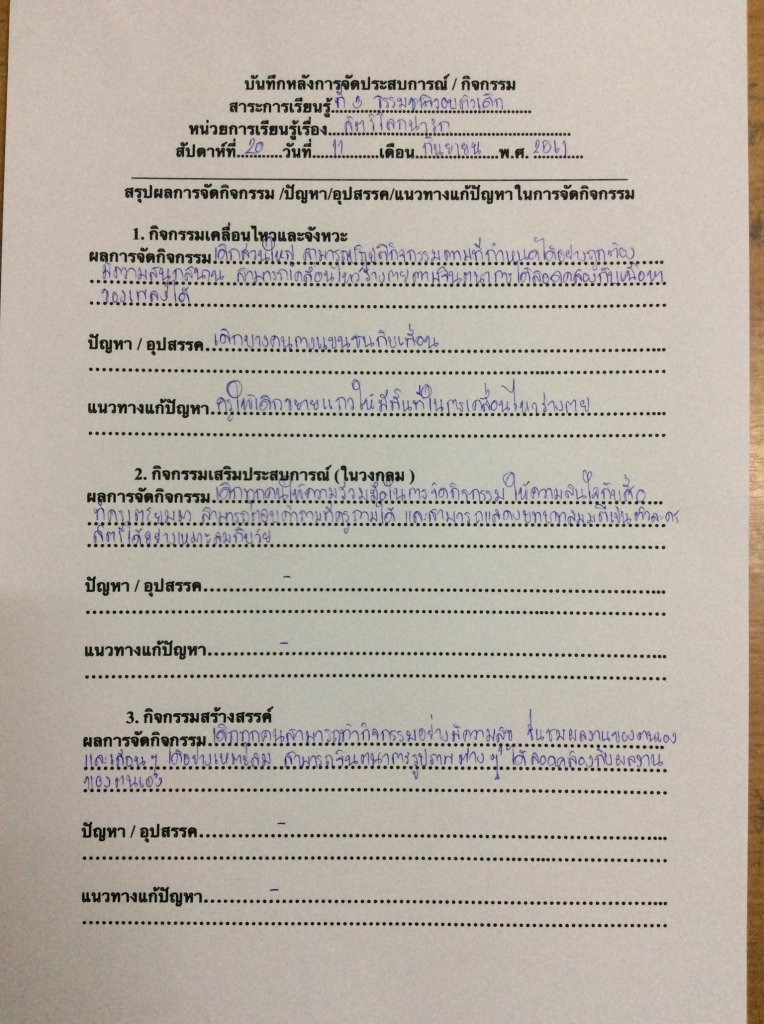 บันทึกหลังการจัดประสบการณ์ / กิจกรรม
สาระการเรียนรู้ ที่ 3 ธรรมชาติรอบตัวเด็ก
หน่วยการเรียนรู้เรื่อง สัตว์โลกน่ารัก
สัปดาห์ที่ 20 วันที่ 11 เดือน กันยายน พ.ศ. 2561
สรุปผลการจัดกิจกรรม /ปัญหา/อุปสรรค/แนวทางแก้ปัญหาในการจัดกิจกรรม
1. กิจกรรมเคลื่อนไหวและจังหวะ
ผลการจัดกิจกรรม เด็กส่วนใหญ่ สามารถปฏิบัติกิจกรรมตามที่กำหนดได้อย่างถูกต้อง
มีความสนุกสนาน สามารถเคลื่อนไหวร่างกายตามจินตนาการได้สอดคล้องกับเนื้อหา
ของเพลงได้
ปัญหา / อุปสรรค เด็กบางคนกางแขนชนกับเพื่อน
แนวทางแก้ปัญหา ครูให้เด็กขยายแถวให้มีพื้นที่ในการเคลื่อนไหวร่างกาย
2. กิจกรรมเสริมประสบการณ์ (ในวงกลม )
ผลการจัดกิจกรรม เด็กทุกคนให้ความร่วมมือในการจัดกิจกรรม ให้ความสนใจกับสื่อ
ที่ครูเตรียมมา สามารถตอบคำถามที่ครูถามได้ และสามารถแสดงบทบาทสมมติเป็นตัวละคร
สัตว์ได้อย่างเหมาะสมกับวัย
ปัญหา / อุปสรรค -
แนวทางแก้ปัญหา -
3. กิจกรรมสร้างสรรค์
ผลการจัดกิจกรรม เด็กทุกคนสามารถทำกิจกรรมอย่างมีความสุข ชื่นชมผลงานของตนเอง
และเพื่อน ๆ ได้อย่างเหมาะสม สามารถจินตนาการรูปภาพต่าง ๆ ได้สอดคล้องกับผลงาน
ของตนเอง
ปัญหา / อุปสรรค -
แนวทางแก้ปัญหา -